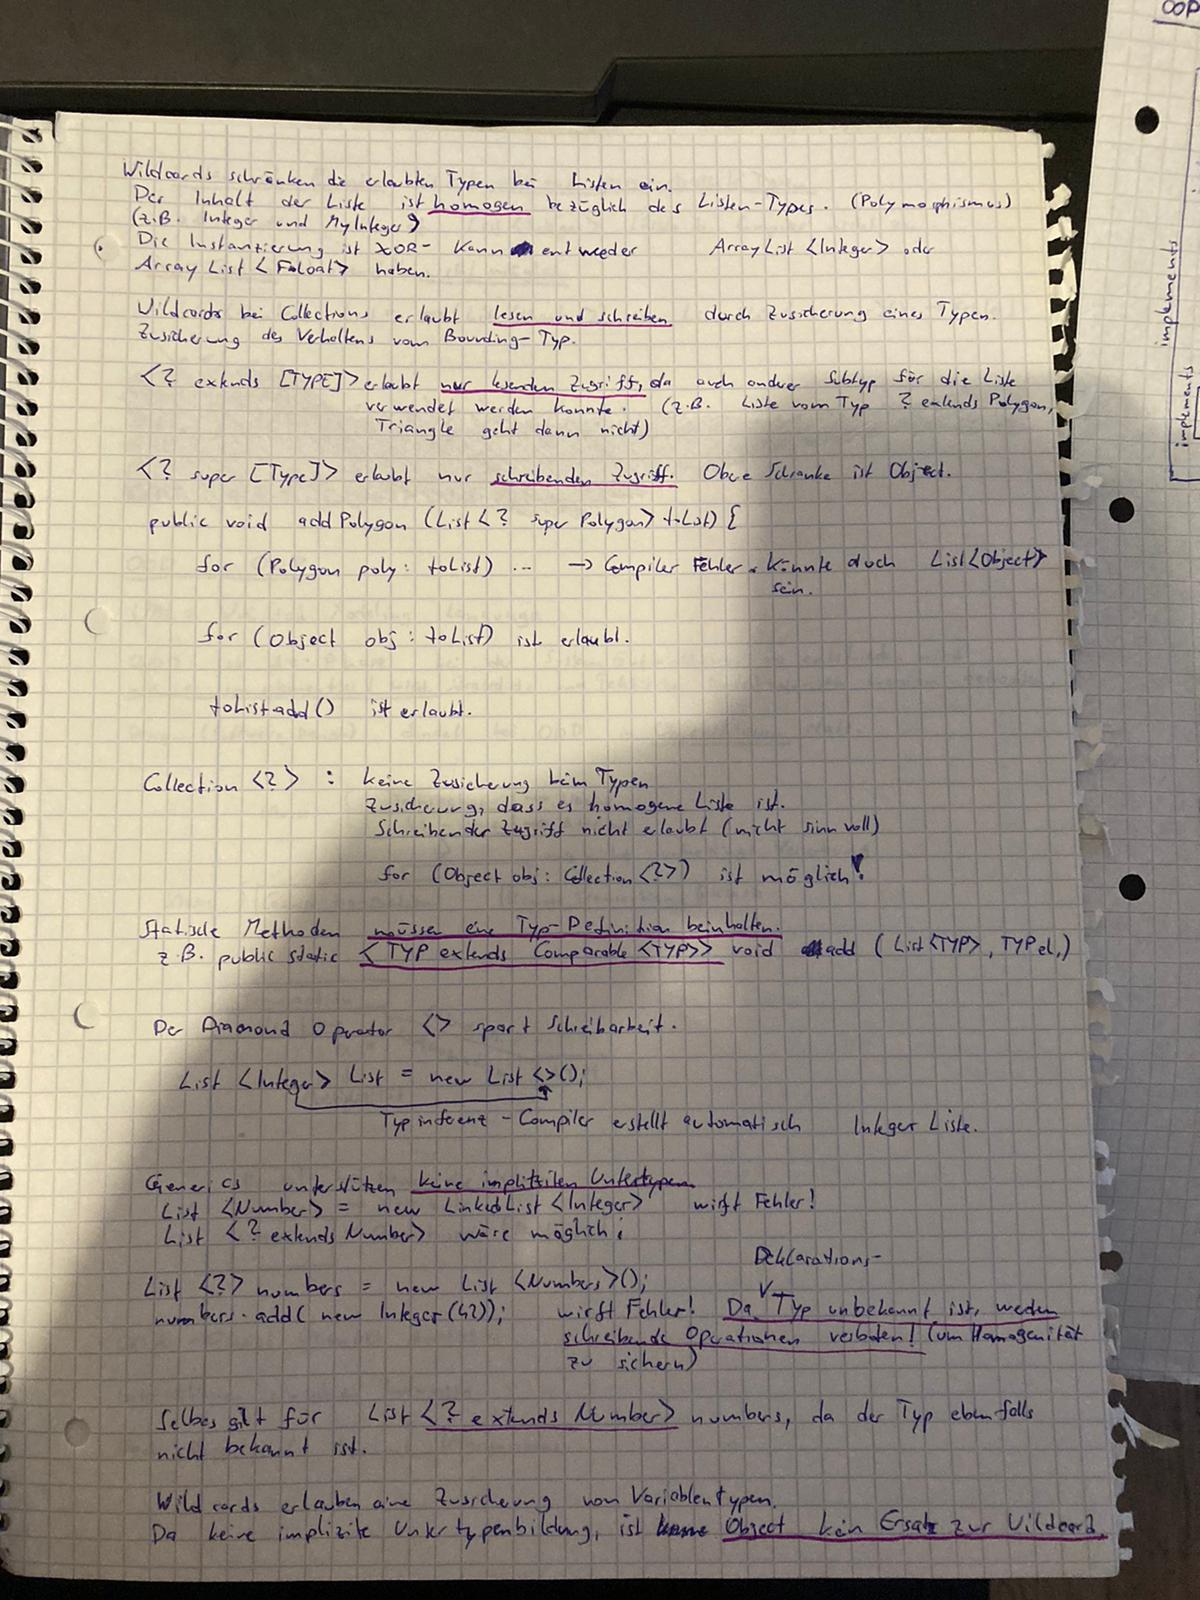 Wildcards schränken die erlaubten Typen bei Listen ein.
Der Inhalt der Liste ist homogen bezüglich des Listen-Types. (Polymorphismus)
(z.B. Integer und MyInteger)
Die Instanzierung ist XOR- kann entweder ArrayList <Integer> oder
Array List <Float> haben.
Wildcards bei Collections erlaubt lesen und schreiben durch Zusicherung eines Typen.
Zusicherung des Verhaltens vom Bounding-Typ.
<? extends [TYPE]> erlaubt nur lesenden Zugriff, da auch anderer Subtyp für die Liste
verwendet werden konnte. (z.B. Liste vom Typ ? extends Polygon,
Triangle geht dann nicht)
<? super [Type]> erlaubt nur schreibenden Zugriff. Obere Schranke ist Object.
public void addPolygon (List<? super Polygon> toList) {
for (Polygon poly: toList) ... → Compiler Fehler. könnte doch List<Object>
sein.
for (Object obj : toList) ist erlaubt.
toList.add() ist erlaubt.
Collection <?> : keine Zusicherung beim Typen
Zusicherung, dass es homogene Liste ist.
Schreibender Zugriff nicht erlaubt (nicht sinnvoll)
for (Object obj: Collection <?>) ist möglich!
Statische Methoden müssen eine Typ-Definition beinhalten.
z.B. public static <TYP extends Comparable <TYP>> void add (List<TYP>, TYP el.)
Der Diamond Operator <> spart Schreibarbeit.
List <Integer> List = new List <>();
Typinferenz - Compiler erstellt automatisch Integer Liste.
Generics unterstützen keine impliziten Untertypen
List <Number> = new LinkedList <Integer> wirft Fehler!
List <? extends Number> wäre möglich!
Deklarations-
List <?> numbers = new List <Numbers>();
numbers.add( new Integer (42)); wirft Fehler! Da Typ unbekannt ist, werden
schreibende Operationen verboten! (um Homogenität
zu sichern)
Selbes gilt für List <? extends Number> numbers, da der Typ ebenfalls
nicht bekannt ist.
Wildcards erlauben eine Zusicherung von Variablentypen.
Da keine implizite Untertypenbildung, ist Object kein Ersatz zur Wildcard.
OOP
implements
implements